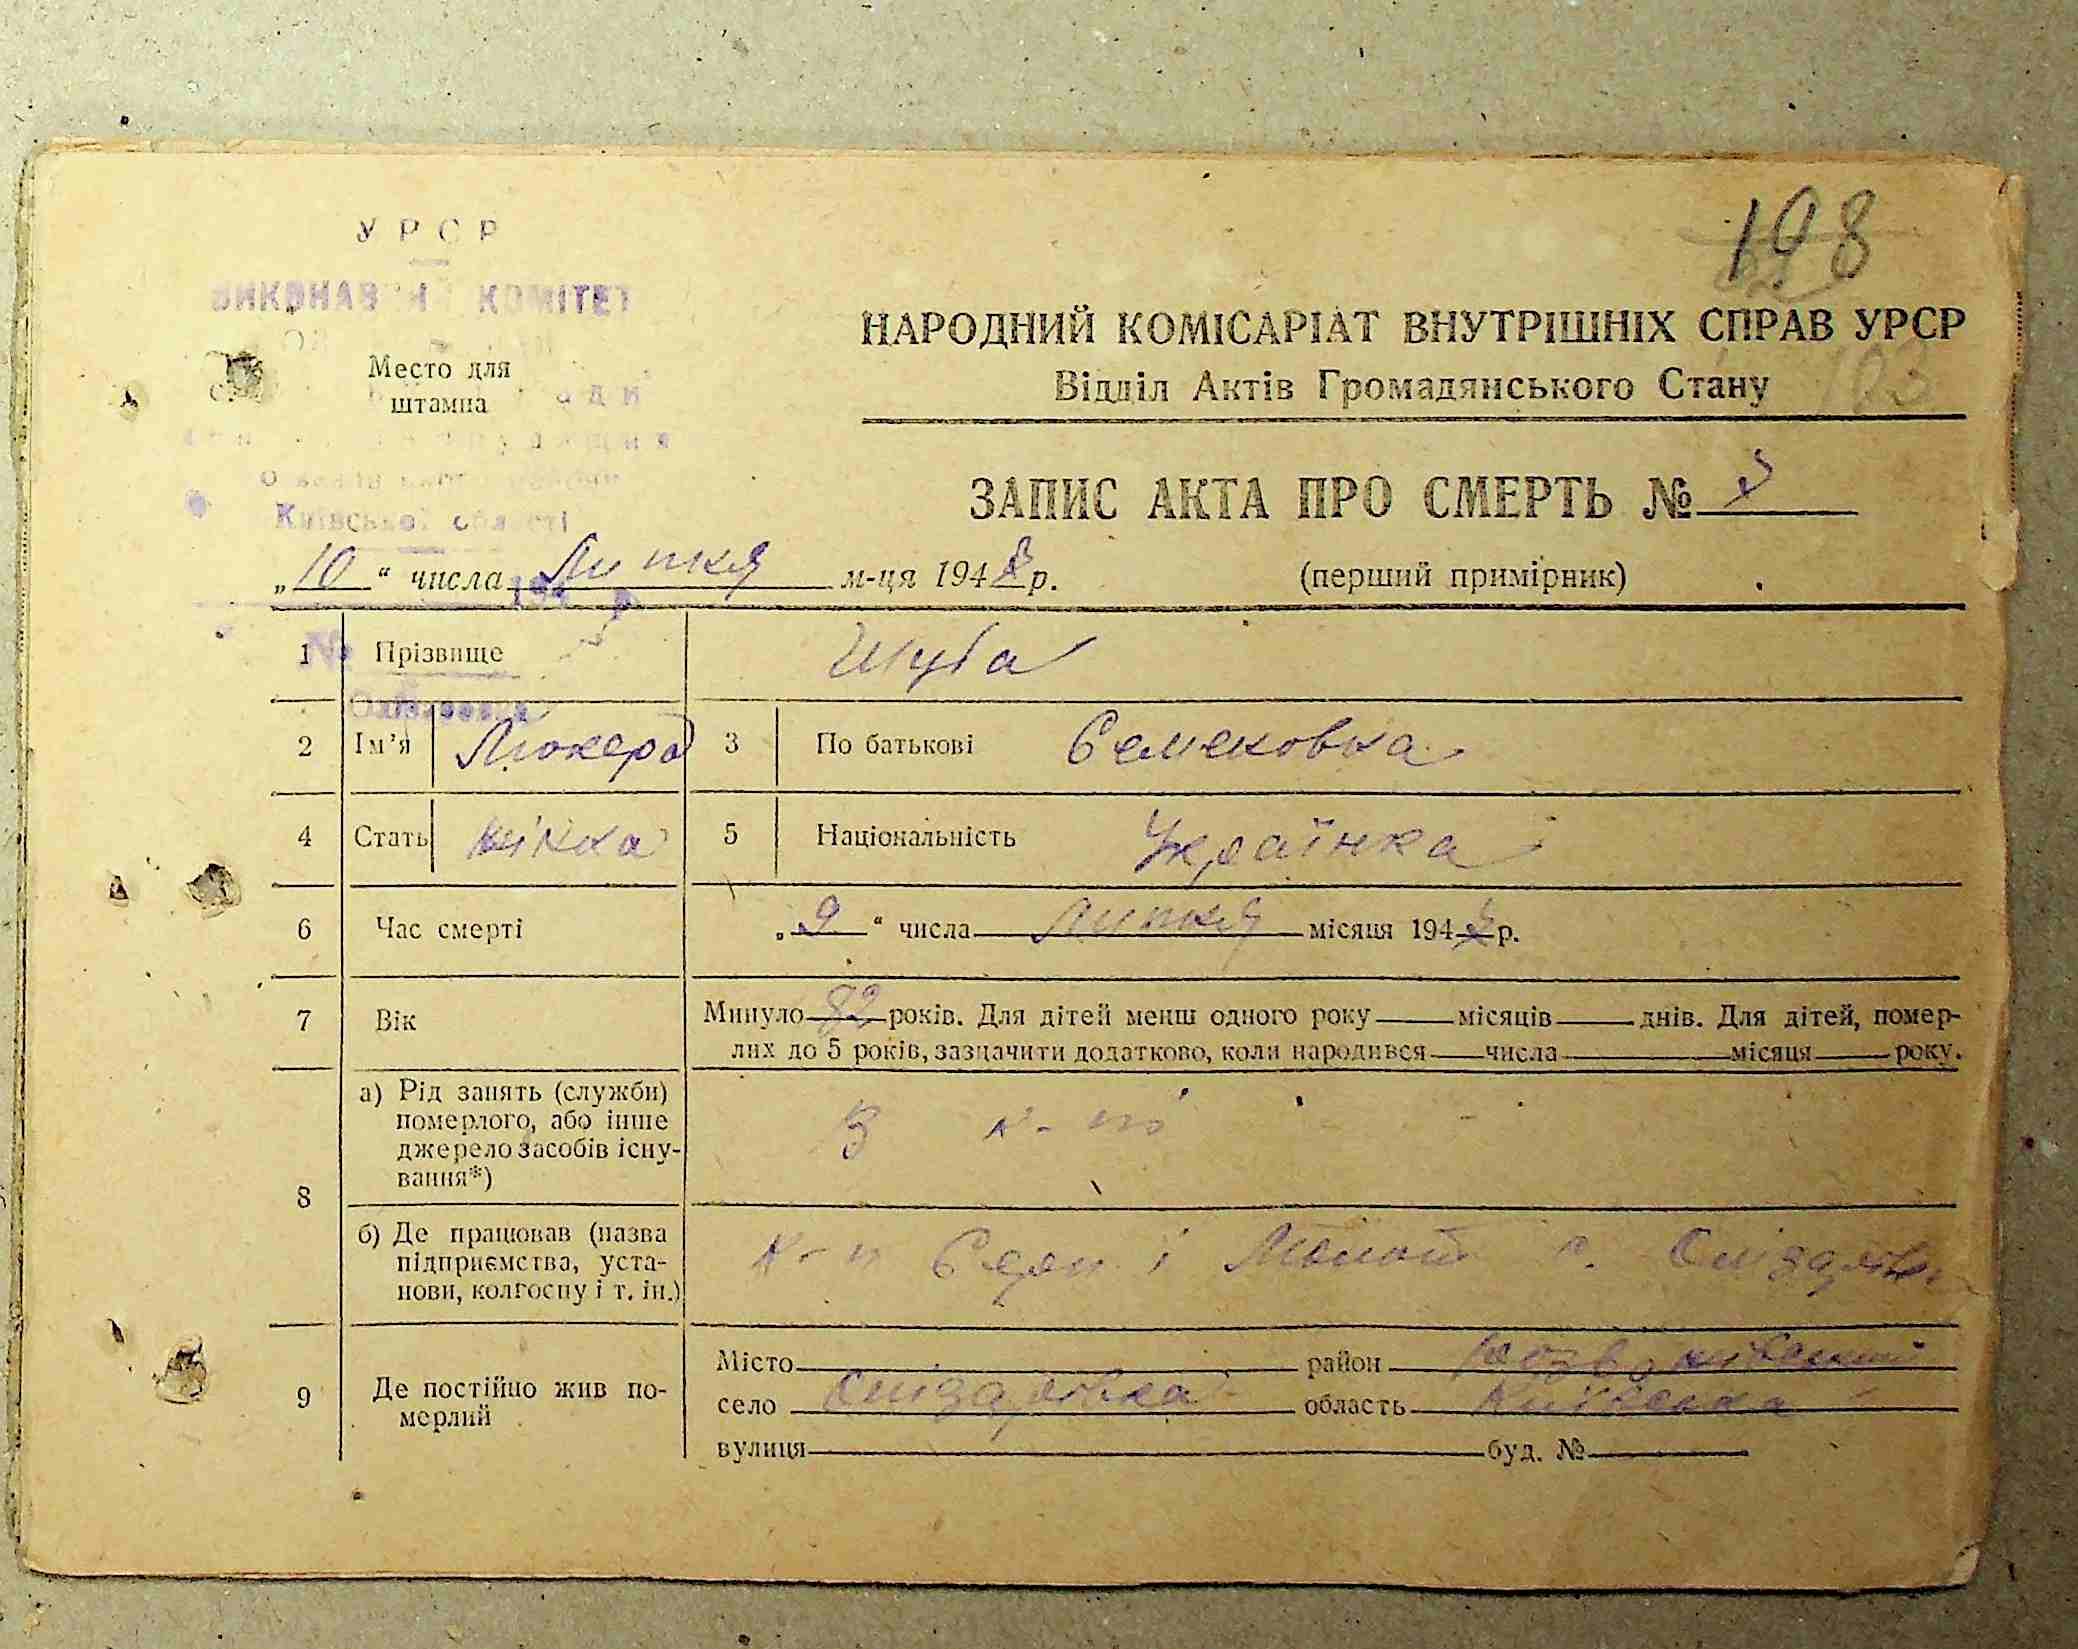 198
УРСР
ВИКОНАВЧИЙ КОМІТЕТ
Место для
штампа
Київської області
НАРОДНИЙ КОМІСАРІАТ ВНУТРІШНІХ СПРАВ УРСР
Відділ Актів Громадянського Стану
103
ЗАПИС АКТА ПРО СМЕРТЬ №
„10“ числа Липня м-ця 194 р.
(перший примірник)
1 Прізвище Шуба
2 Ім'я 3 По батькові Семеновна
4 Стать жінка 5 Національність Українка
6 Час смерті „9“ числа липня місяця 194 р.
7 Вік Минуло 82 років. Для дітей менш одного року місяців днів. Для дітей, помер-
лих до 5 років, зазначити додатково, коли народився числа місяця року.
8 а) Рід занять (служби)
померлого, або інше
джерело засобів існу-
вання*)
В к-пі
б) Де працював (назва
підприємства, уста-
нови, колгоспу і т. ін.)
к-п Серп і Молот с.
9 Де постійно жив по-
мерлий
Місто район
село область Київська
вулиця буд. №